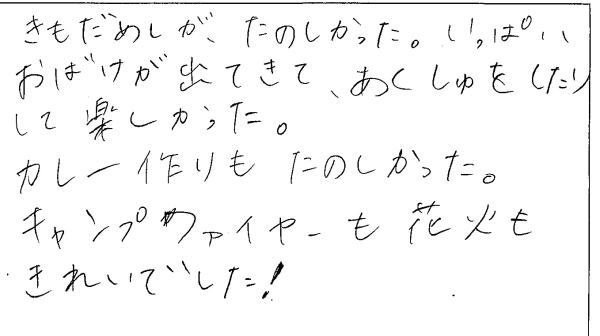 きもだめしが、たのしかった。いっぱい
おばけが出てきて、あくしゅをしたり
して楽しかった。
カレー作りも たのしかった。
キャンプファイヤーも花火も
きれいでした!